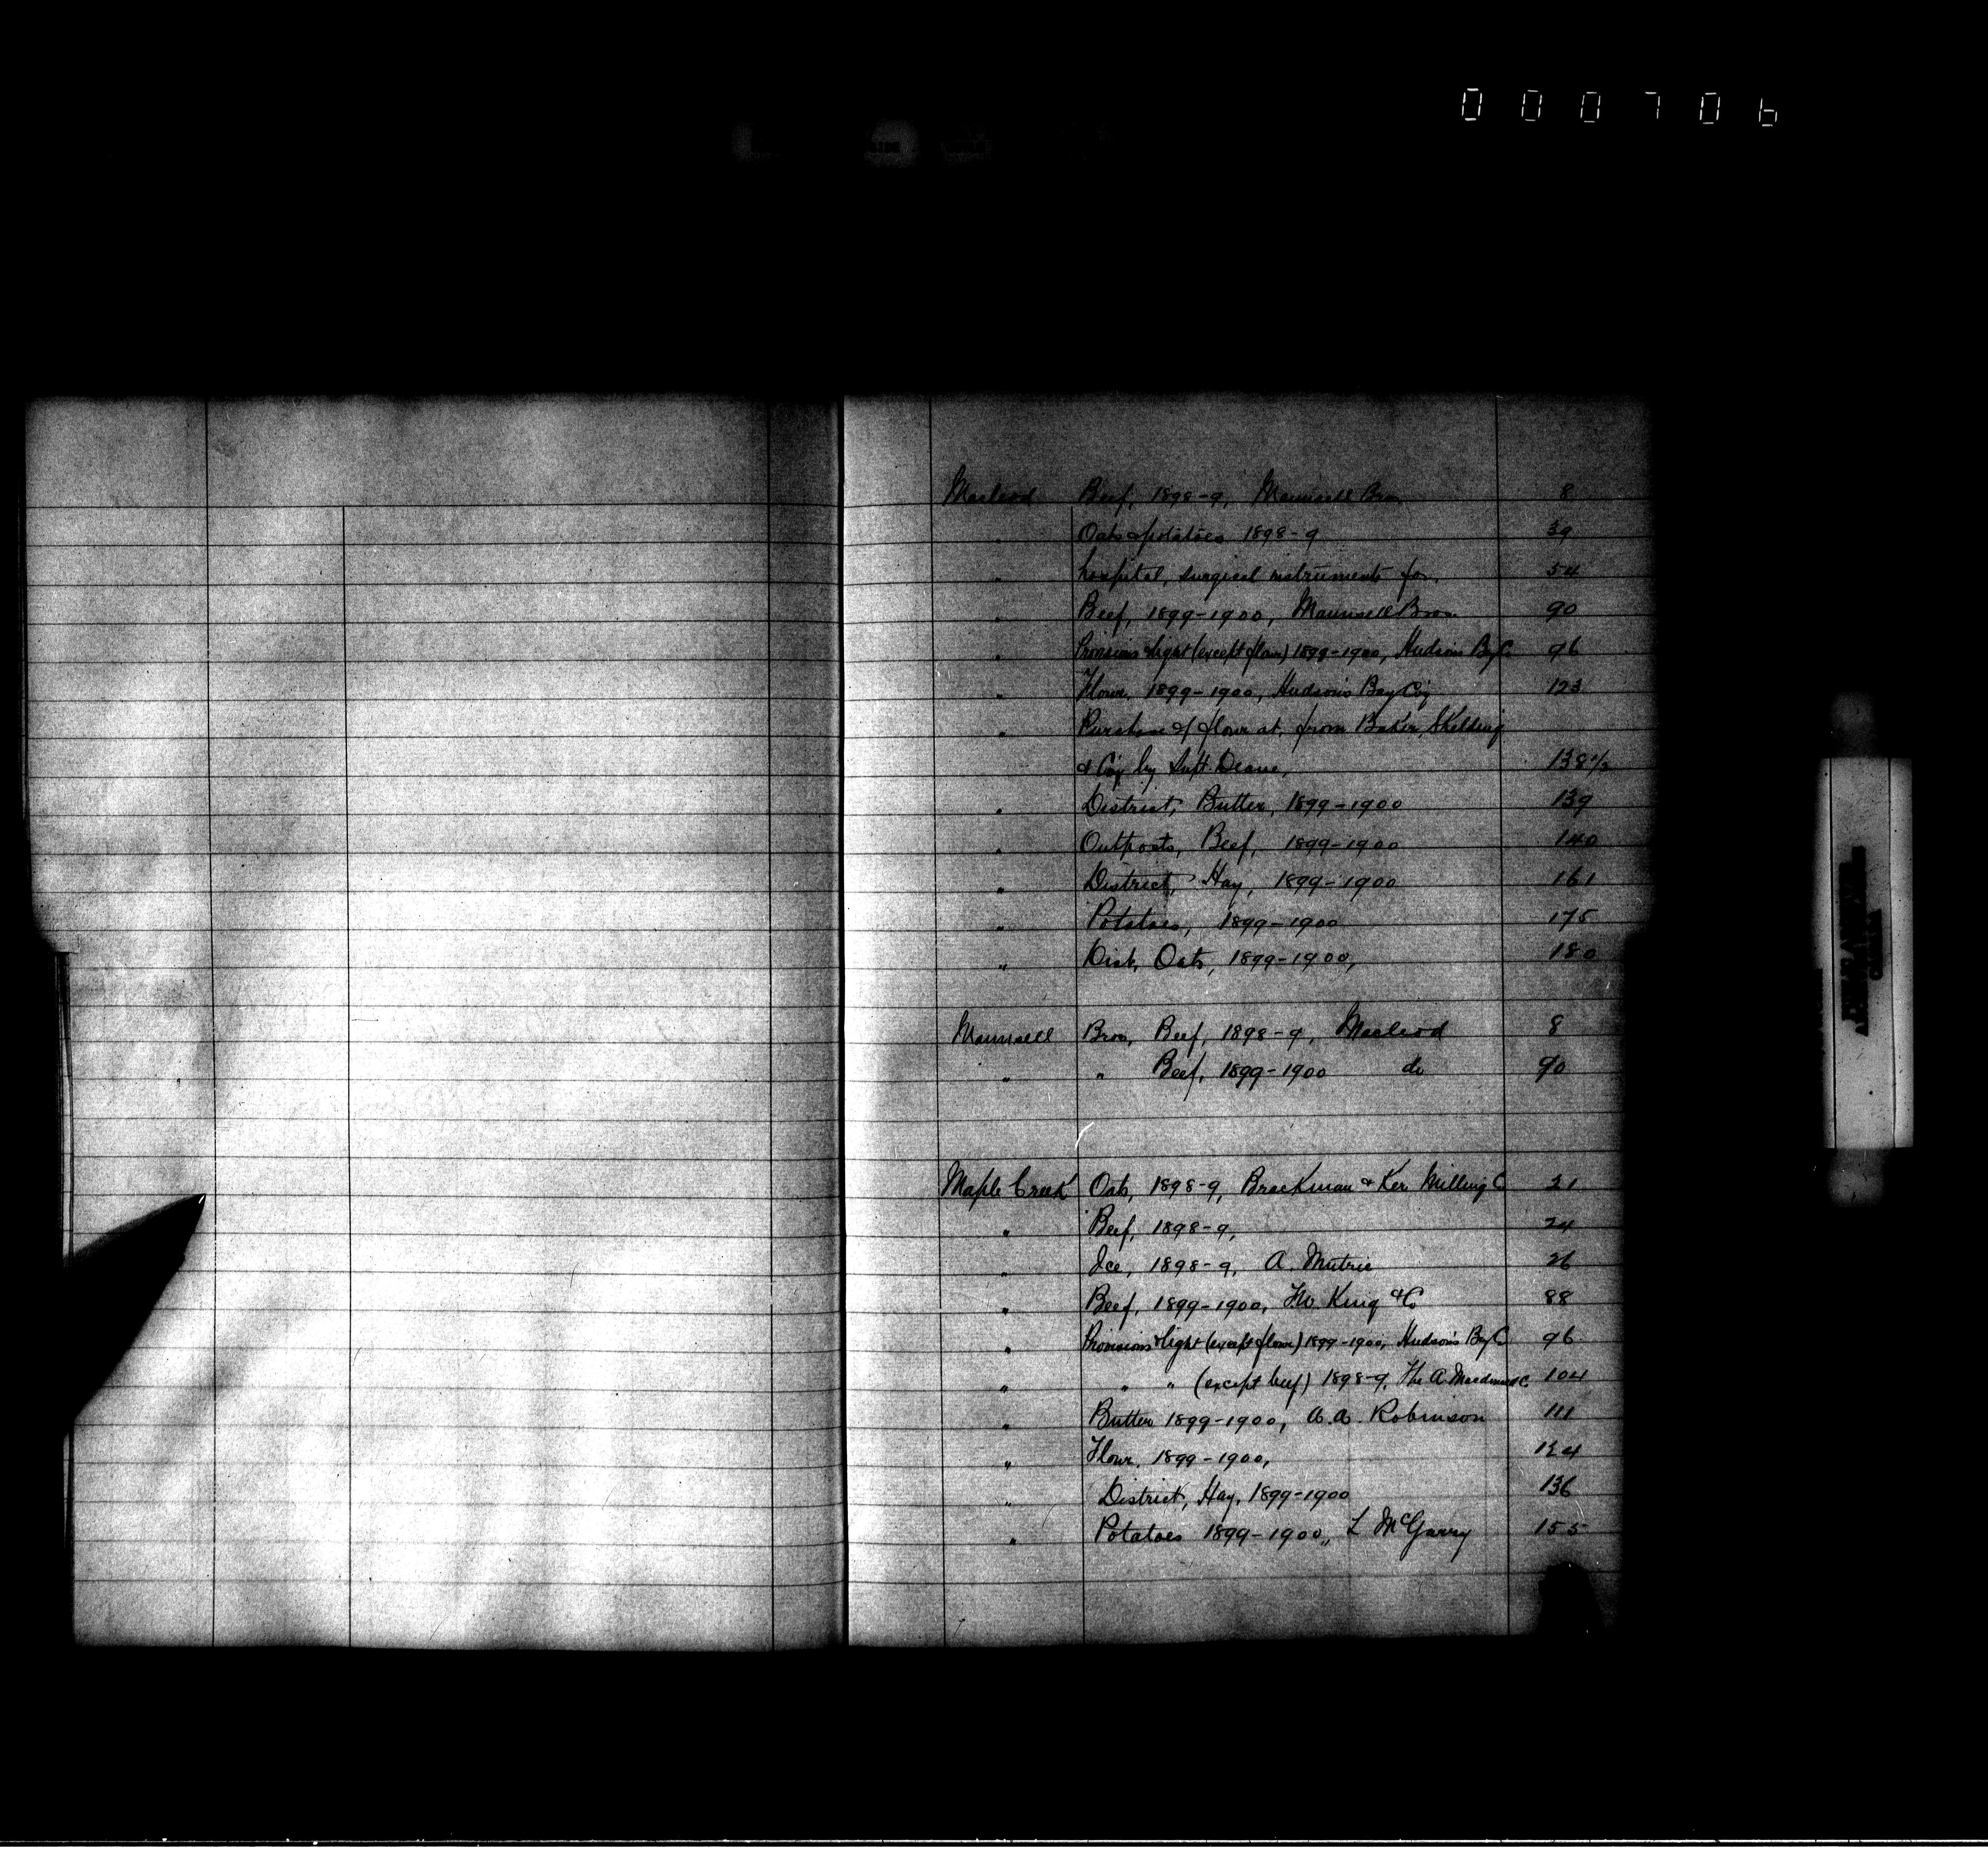 000706
Macleod Beef, 1898-9, Maunsell Bros 8
" Oats & potatoes 1898-9 39
" hospital, surgical instruments for. 54
" Beef, 1899-1900, Maunsell Bros 90
" Provisions & light (except flour) 1899-1900, Hudson's Bay C 96
" Flour, 1899-1900, Hudson's Bay Coy 123
" Purchase of flour at, from Baker, Skelding
& Coy by Supt. Deane, 138½
" District, Butter, 1899-1900 139
" Outposts, Beef, 1899-1900 140
" District, Hay, 1899-1900 161
" Potatoes, 1899-1900 175
" Dist, Oats, 1899-1900, 180
Maunsell Bros, Beef, 1898-9, Macleod 8
" " Beef, 1899-1900 do 90
Maple Creek Oats, 1898-9, Brackman & Ker Milling C 21
" Beef, 1898-9, 24
" Ice, 1898-9, A. Mutrie 26
" Beef, 1899-1900, F.W. King & Co 88
" Provisions & light (except flour) 1899-1900, Hudson's Bay C 96
" " " (except beef) 1898-9, The A. Macdonald C. 104
" Butter 1899-1900, A.A. Robinson 111
" Flour, 1899-1900, 124
" District, Hay, 1899-1900 136
" Potatoes 1899-1900, L McGarry 155